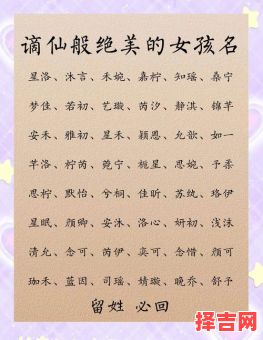 谪仙般绝美的女孩名
星洛、沐言、禾婉、嘉柠、知瑶、桑宁
梦佳、若初、艺璇、芮汐、静淇、锦芊
安禾、雅初、星禾、颖恩、允歆、如一
芊洛、柠芮、菀宁、栀星、思婉、予柔
思柠、默怡、兮桐、佳昕、苏纨、珞伊
星眠、颜卿、安沐、洛心、妍初、浅沫
清允、念可、芮伊、奕可、念惜、颜可
珈禾、蓝因、司瑶、婧璇、晚乔、舒予
留姓 必回
择吉网